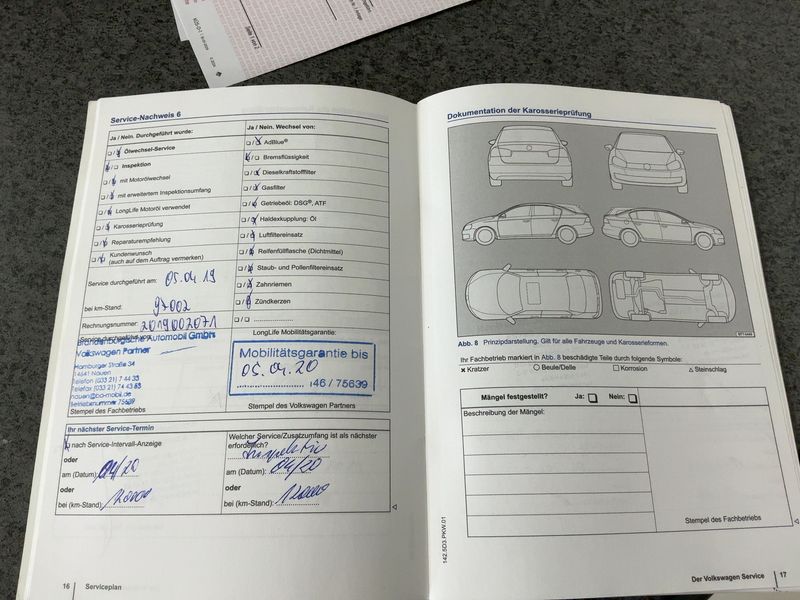 Seite 1 von 2
Service-Nachweis 6
Ja / Nein. Durchgeführt wurde:
Ölwechsel-Service
Inspektion
mit Motorölwechsel
mit erweitertem Inspektionsumfang
LongLife Motoröl verwendet
Karosserieprüfung
Reparaturempfehlung
Kundenwunsch
(auch auf dem Auftrag vermerken)
Service durchgeführt am: 05.04.19
bei km-Stand: 97002
Rechnungsnummer: 2019002071
Service durchgeführt von:
Brandenburgische Automobil GmbH
Volkswagen Partner
Hamburger Straße 34
14641 Nauen
Telefon (033 21) 7 44 33
Telefax (033 21) 74 43 88
nauen@ba-mobil.de
Betriebsnummer 75639
Stempel des Fachbetriebs
Ja / Nein. Wechsel von:
AdBlue®
Bremsflüssigkeit
Dieselkraftstofffilter
Gasfilter
Getriebeöl: DSG®, ATF
Haldexkupplung: Öl
Luftfiltereinsatz
Reifenfüllflasche (Dichtmittel)
Staub- und Pollenfiltereinsatz
Zahnriemen
Zündkerzen
LongLife Mobilitätsgarantie:
Mobilitätsgarantie bis
05.04.20
146 / 75639
Stempel des Volkswagen Partners
Ihr nächster Service-Termin
nach Service-Intervall-Anzeige
oder
am (Datum): 04/20
oder
bei (km-Stand):
Welcher Service/Zusatzumfang ist als nächster
erforderlich?
Inspektion
am (Datum): 04/20
oder
bei (km-Stand):
16 Serviceplan
Dokumentation der Karosserieprüfung
Abb. 8 Prinzipdarstellung. Gilt für alle Fahrzeuge und Karosserieformen.
Ihr Fachbetrieb markiert in Abb. 8 beschädigte Teile durch folgende Symbole:
x Kratzer O Beule/Delle □ Korrosion △ Steinschlag
Mängel festgestellt? Ja: Nein:
Beschreibung der Mängel:
Stempel des Fachbetriebs
142.5D3.PKW.01
Der Volkswagen Service 17